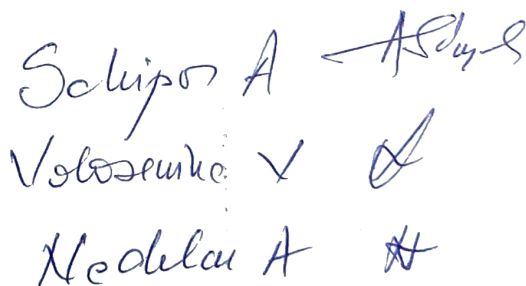 Schipor A
Voloseniuc V
Nedelcu A